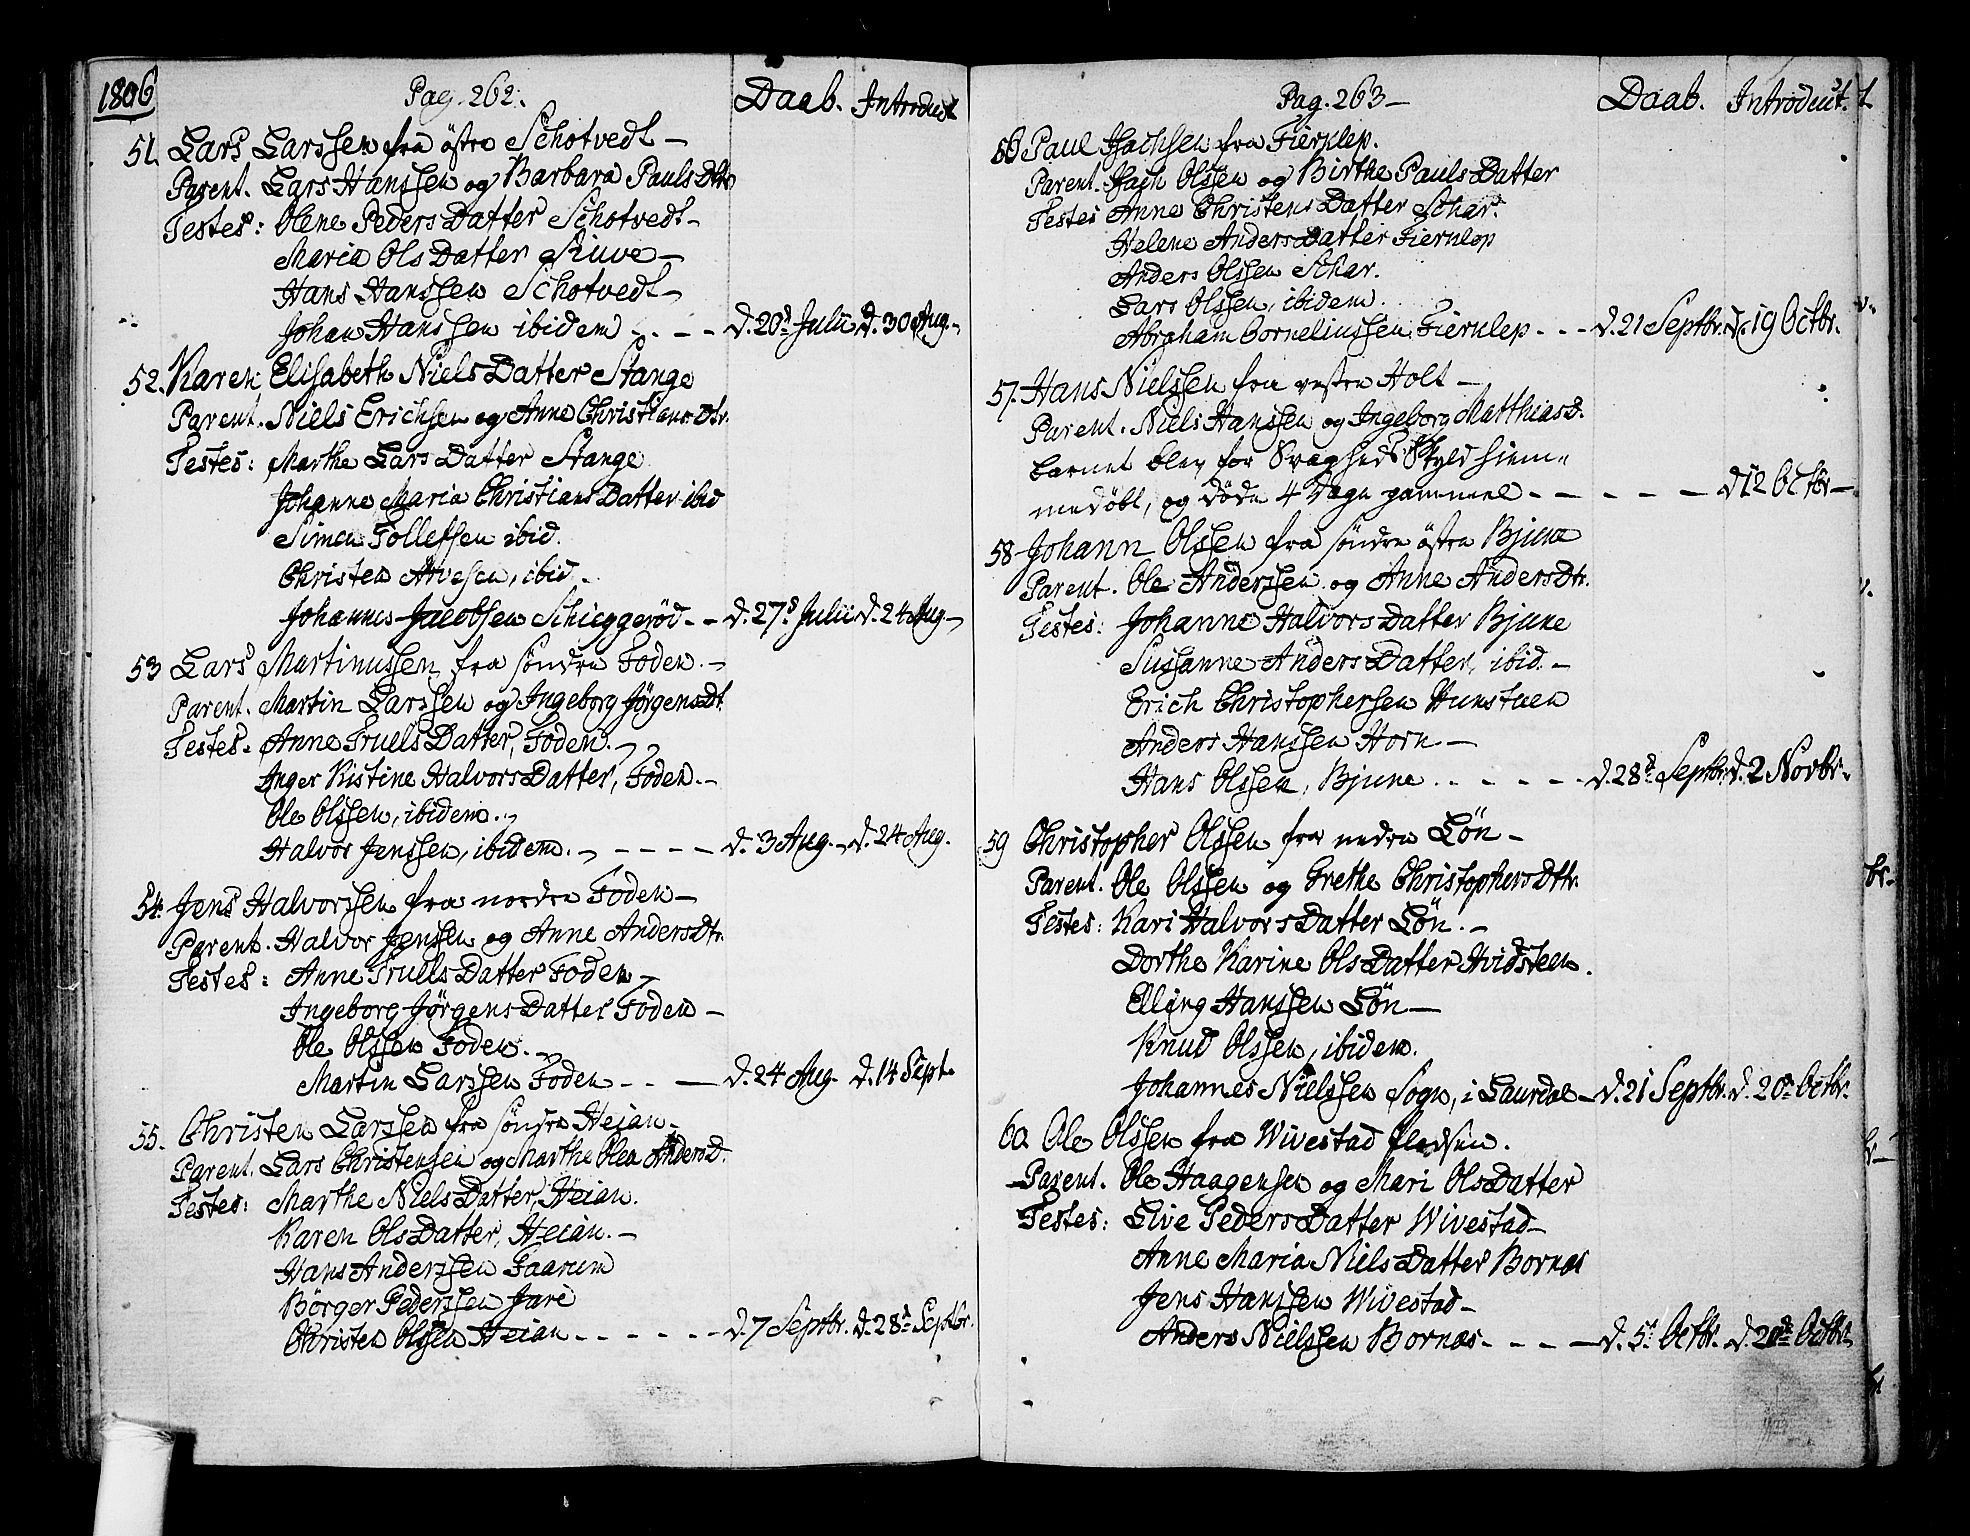 1806
Pag. 262.
Daab. Introduct
51. Lars Larssen fra östre Schotvedt -
Parent. Lars Hanssen og Barbara Pauls Dtr
Testes: Olene Peders Datter Schotvedt -
Maria Ols Datter Ruve -
Hans Hanssen Schotvedt -
Johan Hanssen ibidem - - - d. 20d Julii d. 30 Aug. -
52. Karen Elisabeth Niels Datter Stange
Parent. Niels Erichsen og Anne Christians Dtr.
Testes: Marthe Lars Datter Stange
Johanne Maria Christians Datter ibid
Simen Tollefsen ibid.
Christen Arvesen, ibid.
Johannes Jacobsen Schieggeröd - - d. 27d Julii d. 24 Aug -
53 Lars Martinussen fra söndre Foden. -
Parent. Martin Larssen og Ingeborg Jörgens Dt.
Testes. Anne Truels Datter, Foden. -
Inger Kistine Halvors Datter, Foden. -
Ole Olssen, ibidem. -
Halvor Jenssen, ibidem. - - - - - d. 3 Aug. - d. 24 Aug.
54. Jens Halvorssen fra nordre Foden -
Parent. Halvor Jenssen og Anne Anders Dtr.
Testes: Anne Truels Datter Foden -
Ingeborg Jörgens Datter Foden -
Ole Olssen Foden. -
Martin Larssen Foden - - - d. 24 Aug. d. 14 Sept.
55. Christen Larssen fra söndre Heian -
Parent. Lars Christensen og Marthe Olea Anders D.
Testes: Marthe Niels Datter, Heian.
Karen Ols Datter, Heian. -
Hans Anderssen Faarum
Börger Pederssen Jare
Christen Olssen Heian - - - - - - d. 7 Septbr. d. 28d Septbr.
Pag. 263 -
Daab. Introduct.
56 Paul Isachsen fra Fierulep.
Parent. Isach Olssen og Birthe Pauls Datter
Testes Anne Christens Datter Schar.
Helene Anders Datter Fierulep
Anders Olssen Schar.
Lars Olssen, ibidem.
Abraham Corneliussen Fierulep - - - d. 21 Septbr. d. 19 Octbr.
57. Hans Nielssen fra vestre Holt -
Parent. Niels Hanssen og Ingeborg Matthias D.
Barnet blev for Svagheds Skyld hiem-
medöbt, og döde 4 Dage gammel - - - - - d 12 Octbr -
58 Johann Olssen fra söndre östre Bjune
Parent. Ole Anderssen og Anne Anders Dtr.
Testes: Johanne Halvors Datter Bjune
Sussanne Anders Datter, ibid. -
Erich Christophersen Hunstuen
Anders Hanssen Horn. -
Hans Olssen, Bjune . . - - - - d. 28d Septbr d. 2 Novbr.
59 Christopher Olssen fra nedre Lön -
Parent. Ole Olssen og Grethe Christophers Dtr.
Testes: Kari Halvors Datter Lön. -
Dorthe Karine Ols Datter Hvidsteen.
Elling Hanssen Lön -
Knud Olssen, ibidem.
Johannes Nielssen Sogn, i Laurdal - d. 21 Septbr. d. 20d Octbr.
60. Ole Olssen fra Wivestad
Parent. Ole Haagensen og Mari Ols Datter
Testes: Live Peders Datter Wivestad -
Anne Maria Niels Datter Bornæs
Jens Hanssen Wivestad -
Anders Nielssen Bornæs - - - - d. 5d Octbr. d. Octbr.